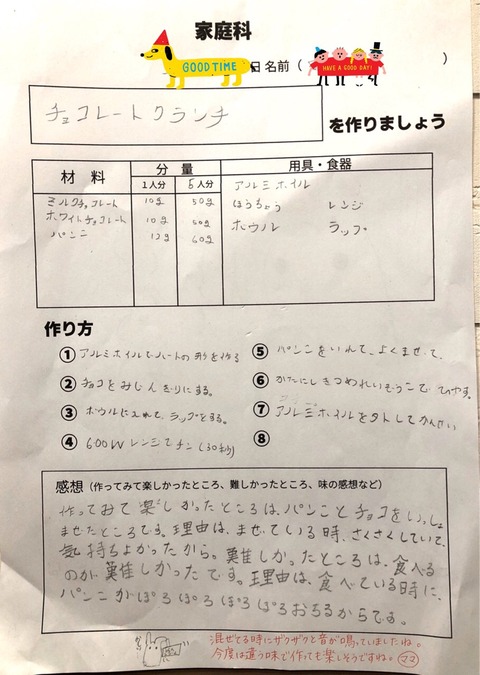 家庭科
GOOD TIME
名前 ( HAVE A GOOD DAY! )
チョコレートクランチ
を作りましょう
材料 分量 用具・食器
1人分 5人分
アルミホイル
ミルクチョコレート 10g 50g ほうちょう レンジ
ホワイトチョコレート 10g 50g ボウル ラップ
パンこ 12g 60g
作り方
① アルミホイルでハートの形を作る
② チョコをみじんぎりにする。
③ ボウルに入れて、ラップをする。
④ 600Wレンジでチン(30秒)
⑤ パンこをいれて、よくまぜて、
⑥ かたにしきつめれいぞうこでひやす。
⑦ アルミホイルを外してかんせい
⑧
感想(作ってみて楽しかったところ、難しかったところ、味の感想など)
作ってみて楽しかったところは、パンことチョコをいっしょ
ませたところです。理由は、まぜている時、さくさくしていて、
気持ちよかったから。難しかったところは、食べる
のが難しかったです。理由は、食べている時に、
パンこがぽろぽろぽろぽろおちるからです。
混ぜてる時にザクザクと音が鳴っていましたね。
今度は違う味で作っても楽しそうですね。ママ